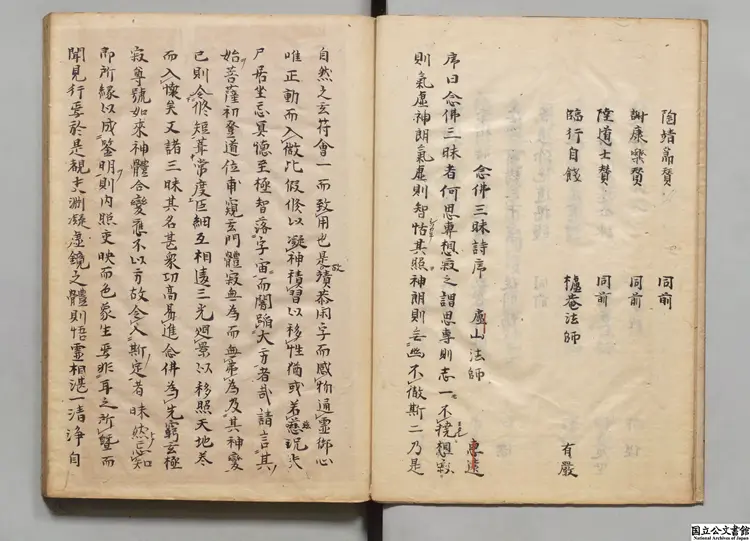 陶靖節賛 同前
謝康樂賛 同前
陸道士賛 同前
臨行自餞 櫨菴法師 有嚴
念佛三昧詩序 廬山法師 惠遠
序曰念佛三昧者何思專想寂之謂思專則志一不撓想寂
則氣虛神朗氣虛則智恬其照神朗則無幽不徹斯二乃是
自然之玄符會一而致用也是故靖恭閑宇而感物通靈御心
唯正動而入微比假修以凝神積習以移性猶或若茲況夫
尸居坐忘冥懷至極智落宇宙而闇蹈大方者哉請言其
始菩薩初登道位甫窺玄門體寂無為而無弗為及其神變
已則令修短革常度巨細互相違三光迴景以移照天地卷
而入懷矣又諸三昧其名甚衆功高易進念佛為先窮玄極
寂尊號如來神體合變應不以方故令入斯定者昧然忘知
即所緣以成鑒明則内照交映而色象生焉非耳之所暨而
聞見行焉於是覩夫淵凝虛鏡之體則悟靈相湛一清淨自
国立公文書館
National Archives of Japan